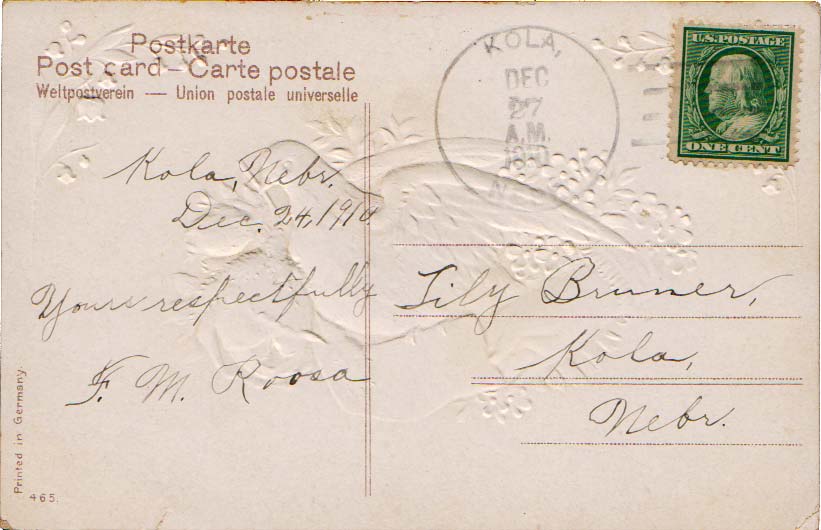 Postkarte
Post card – Carte postale
Weltpostverein — Union postale universelle
KOLA,
DEC
27
A.M.
1910
U.S. POSTAGE
ONE CENT
Kola, Nebr.
Dec. 24, 1910
Yours respectfully
F. M. Roosa
Lily Bruner,
Kola,
Nebr.
Printed in Germany.
465.